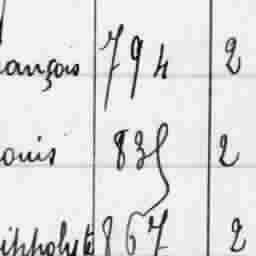 ançois 794 2
ouis 835 2
ippolyte 867 2